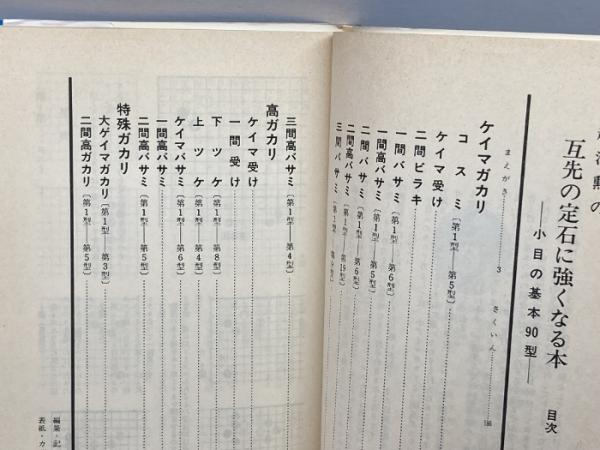 の
互先の定石に強くなる本
——小目の基本90型——
目次
まえがき 3
さくいん 186
ケイマガカリ
コスミ〔第1型——第5型〕
ケイマ受け
二間ビラキ
一間バサミ〔第1型——第6型〕
一間高バサミ〔第1型——第5型〕
二間バサミ〔第1型——第6型〕
二間高バサミ〔第1型——第19型〕
三間バサミ〔第1型
三間高バサミ〔第1型——第4型〕
高ガカリ
ケイマ受け
一間受け
下ツケ〔第1型——第8型〕
上ツケ〔第1型——第4型〕
ケイマバサミ〔第1型——第6型〕
一間高バサミ
二間高バサミ〔第1型——第5型〕
特殊ガカリ
大ゲイマガカリ〔第1型——第3型〕
二間高ガカリ〔第1型——第5型〕
編集・記
表紙・カ